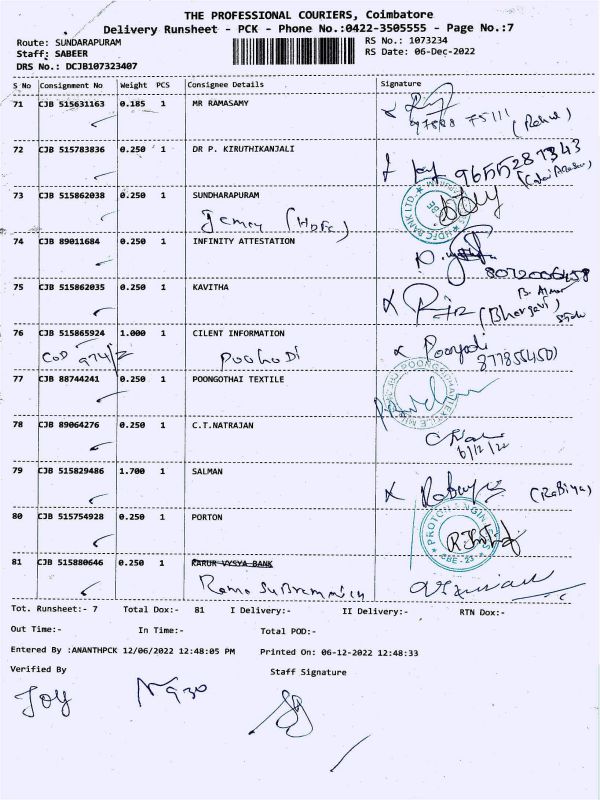 THE PROFESSIONAL COURIERS, Coimbatore
Delivery Runsheet - PCK - Phone No.:0422-3505555 - Page No.:7
Route: SUNDARAPURAM RS No.: 1073234
Staff: SABEER RS Date: 06-Dec-2022
DRS No.: DCJB107323407
S No Consignment No Weight PCS Consignee Details Signature
71 CJB 515631163 0.185 1 MR RAMASAMY
75111 (Rahul)
72 CJB 515783836 0.250 1 DR P. KIRUTHIKANJALI
9655287343
73 CJB 515862038 0.250 1 SUNDHARAPURAM
(HDFC)
HDFC BANK LTD
74 CJB 89011684 0.250 1 INFINITY ATTESTATION
8072006458
75 CJB 515862035 0.250 1 KAVITHA
(Bhargavi)
76 CJB 515865924 1.000 1 CILENT INFORMATION
COD 974/2 Poohodi
77 CJB 88744241 0.250 1 POONGOTHAI TEXTILE
78 CJB 89064276 0.250 1 C.T.NATRAJAN
6/12/22
79 CJB 515829486 1.700 1 SALMAN
(Rabiya)
80 CJB 515754928 0.250 1 PORTON
81 CJB 515880646 0.250 1 KARUR VYSYA BANK
Tot. Runsheet:- 7 Total Dox:- 81 I Delivery:- II Delivery:- RTN Dox:-
Out Time:- In Time:- Total POD:-
Entered By :ANANTHPCK 12/06/2022 12:48:05 PM Printed On: 06-12-2022 12:48:33
Verified By Staff Signature
Joy